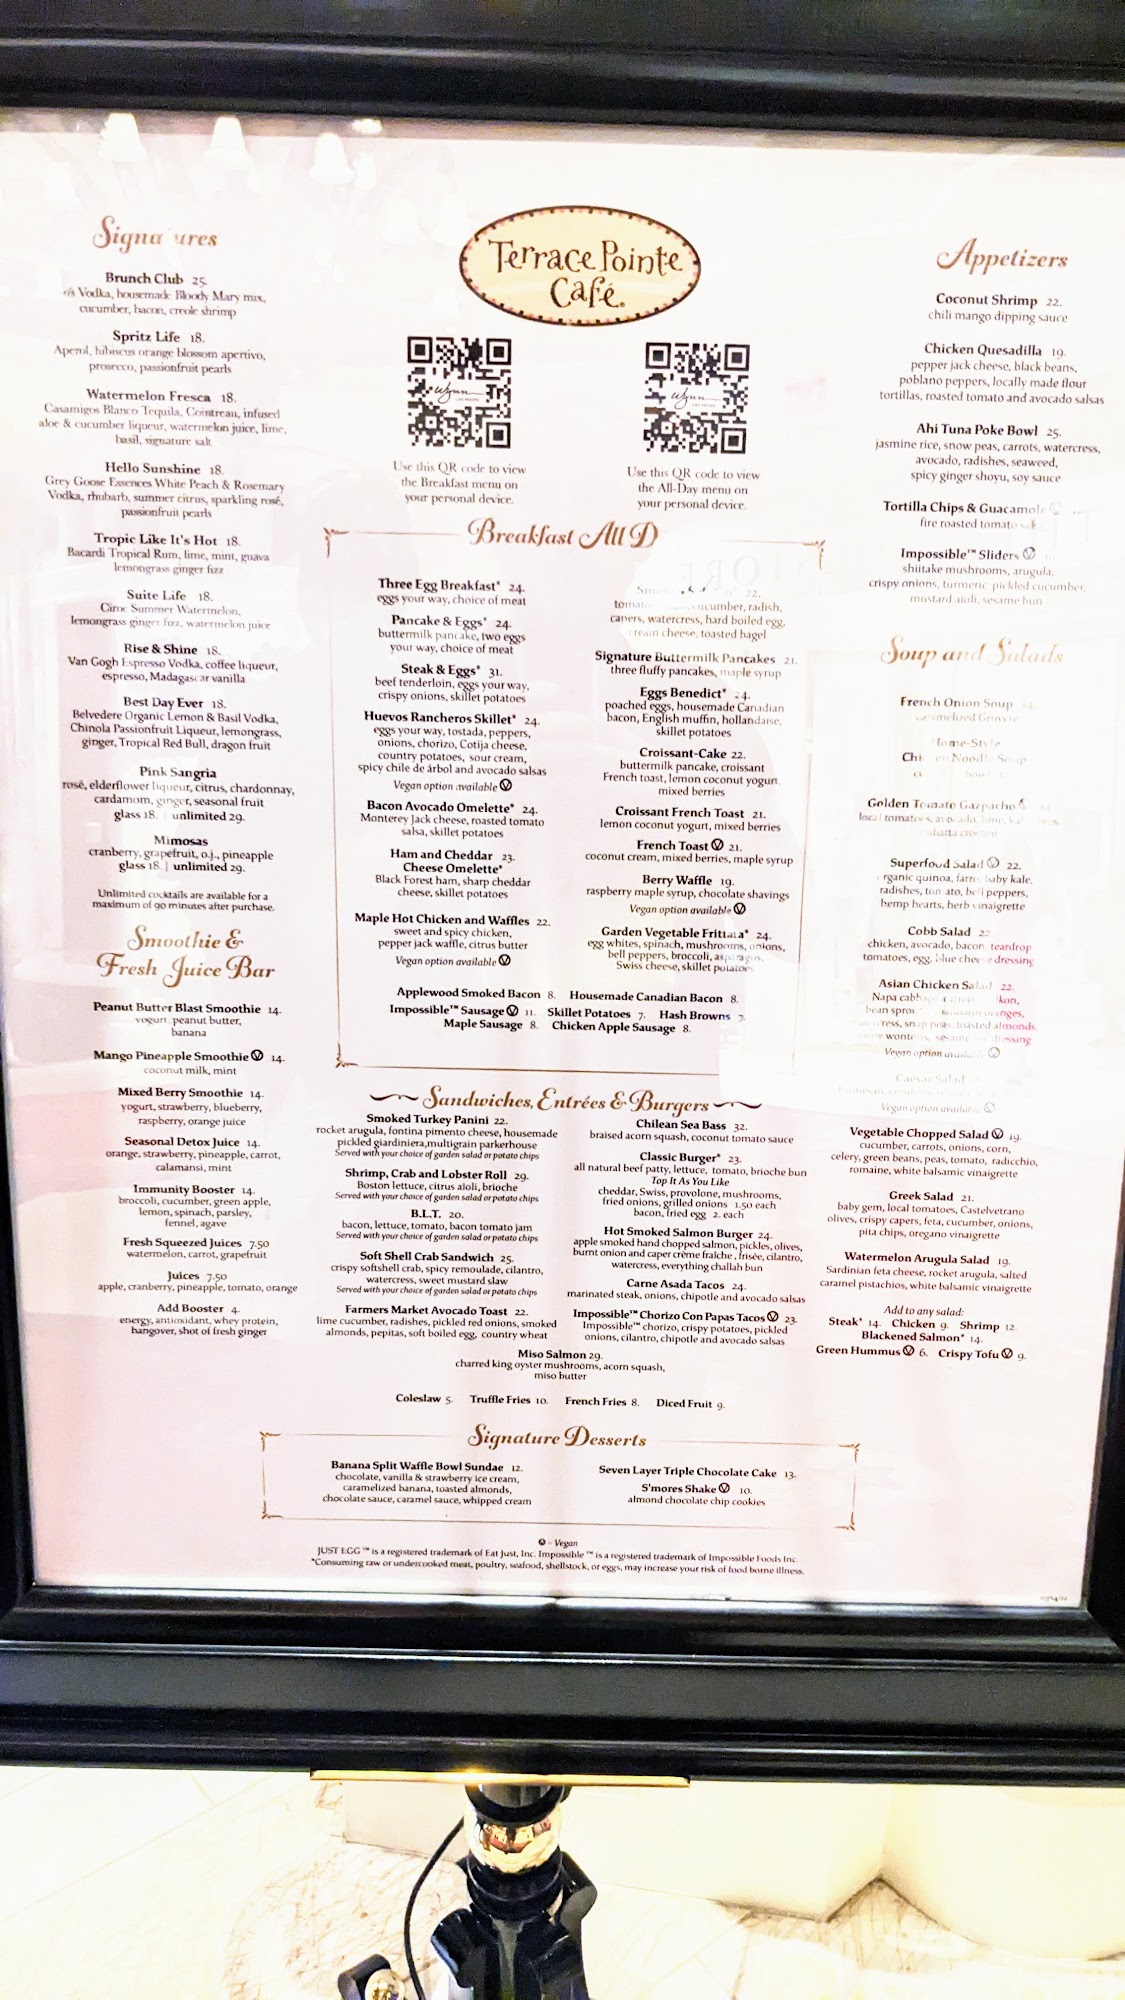 Signatures
Brunch Club 25.
Vodka, housemade Bloody Mary mix,
cucumber, bacon, creole shrimp
Spritz Life 18.
Aperol, hibiscus orange blossom apertivo,
prosecco, passionfruit pearls
Watermelon Fresca 18.
Casamigos Blanco Tequila, Cointreau, infused
aloe & cucumber liqueur, watermelon juice, lime,
basil, signature salt
Hello Sunshine 18.
Grey Goose Essences White Peach & Rosemary
Vodka, rhubarb, summer citrus, sparkling rosé,
passionfruit pearls
Tropic Like It's Hot 18.
Bacardi Tropical Rum, lime, mint, guava
lemongrass ginger fizz
Suite Life 18.
Ciroc Summer Watermelon,
lemongrass ginger fizz, watermelon juice
Rise & Shine 18.
Van Gogh Espresso Vodka, coffee liqueur,
espresso, Madagascar vanilla
Best Day Ever 18.
Belvedere Organic Lemon & Basil Vodka,
Chinola Passionfruit Liqueur, lemongrass,
ginger, Tropical Red Bull, dragon fruit
Pink Sangria
rosé, elderflower liqueur, citrus, chardonnay,
cardamom, ginger, seasonal fruit
glass 18. | unlimited 29.
Mimosas
cranberry, grapefruit, o.j., pineapple
glass 18. | unlimited 29.
Unlimited cocktails are available for a
maximum of 90 minutes after purchase.
Smoothie &
Fresh Juice Bar
Peanut Butter Blast Smoothie 14.
yogurt, peanut butter,
banana
Mango Pineapple Smoothie Ⓥ 14.
coconut milk, mint
Mixed Berry Smoothie 14.
yogurt, strawberry, blueberry,
raspberry, orange juice
Seasonal Detox Juice 14.
orange, strawberry, pineapple, carrot,
calamansi, mint
Immunity Booster 14.
broccoli, cucumber, green apple,
lemon, spinach, parsley,
fennel, agave
Fresh Squeezed Juices 7.50
watermelon, carrot, grapefruit
Juices 7.50
apple, cranberry, pineapple, tomato, orange
Add Booster 4.
energy, antioxidant, whey protein,
hangover, shot of fresh ginger
Terrace Pointe
Café.
Wynn
LAS VEGAS
Use this QR code to view
the Breakfast menu on
your personal device.
Wynn
LAS VEGAS
Use this QR code to view
the All-Day menu on
your personal device.
Breakfast All D
Three Egg Breakfast* 24.
eggs your way, choice of meat
Pancake & Eggs* 24.
buttermilk pancake, two eggs
your way, choice of meat
Steak & Eggs* 31.
beef tenderloin, eggs your way,
crispy onions, skillet potatoes
Huevos Rancheros Skillet* 24.
eggs your way, tostada, peppers,
onions, chorizo, Cotija cheese,
country potatoes, sour cream,
spicy chile de árbol and avocado salsas
Vegan option available Ⓥ
Bacon Avocado Omelette* 24.
Monterey Jack cheese, roasted tomato
salsa, skillet potatoes
Ham and Cheddar 23.
Cheese Omelette*
Black Forest ham, sharp cheddar
cheese, skillet potatoes
Maple Hot Chicken and Waffles 22.
sweet and spicy chicken,
pepper jack waffle, citrus butter
Vegan option available Ⓥ
22.
cucumber, radish,
capers, watercress, hard boiled egg,
cream cheese, toasted bagel
Signature Buttermilk Pancakes 21.
three fluffy pancakes, maple syrup
Eggs Benedict* 24.
poached eggs, housemade Canadian
bacon, English muffin, hollandaise,
skillet potatoes
Croissant-Cake 22.
buttermilk pancake, croissant
French toast, lemon coconut yogurt,
mixed berries
Croissant French Toast 21.
lemon coconut yogurt, mixed berries
French Toast Ⓥ 21.
coconut cream, mixed berries, maple syrup
Berry Waffle 19.
raspberry maple syrup, chocolate shavings
Vegan option available Ⓥ
Garden Vegetable Frittata* 24.
egg whites, spinach, mushrooms, onions,
bell peppers, broccoli, asparagus,
Swiss cheese, skillet potatoes
Applewood Smoked Bacon 8. Housemade Canadian Bacon 8.
Impossible™ Sausage Ⓥ 11. Skillet Potatoes 7. Hash Browns 7.
Maple Sausage 8. Chicken Apple Sausage 8.
Sandwiches, Entrées & Burgers
Smoked Turkey Panini 22.
rocket arugula, fontina pimento cheese, housemade
pickled giardiniera,multigrain parkerhouse
Served with your choice of garden salad or potato chips
Shrimp, Crab and Lobster Roll 29.
Boston lettuce, citrus aioli, brioche
Served with your choice of garden salad or potato chips
B.L.T. 20.
bacon, lettuce, tomato, bacon tomato jam
Served with your choice of garden salad or potato chips
Soft Shell Crab Sandwich 25.
crispy softshell crab, spicy remoulade, cilantro,
watercress, sweet mustard slaw
Served with your choice of garden salad or potato chips
Farmers Market Avocado Toast 22.
lime cucumber, radishes, pickled red onions, smoked
almonds, pepitas, soft boiled egg, country wheat
Chilean Sea Bass 32.
braised acorn squash, coconut tomato sauce
Classic Burger* 23.
all natural beef patty, lettuce, tomato, brioche bun
Top It As You Like
cheddar, Swiss, provolone, mushrooms,
fried onions, grilled onions 1.50 each
bacon, fried egg 2. each
Hot Smoked Salmon Burger 24.
apple smoked hand chopped salmon, pickles, olives,
burnt onion and caper crème fraîche, frisée, cilantro,
watercress, everything challah bun
Carne Asada Tacos 24.
marinated steak, onions, chipotle and avocado salsas
Impossible™ Chorizo Con Papas Tacos Ⓥ 23.
Impossible™ chorizo, crispy potatoes, pickled
onions, cilantro, chipotle and avocado salsas
Miso Salmon 29.
charred king oyster mushrooms, acorn squash,
miso butter
Coleslaw 5. Truffle Fries 10. French Fries 8. Diced Fruit 9.
Signature Desserts
Banana Split Waffle Bowl Sundae 12.
chocolate, vanilla & strawberry ice cream,
caramelized banana, toasted almonds,
chocolate sauce, caramel sauce, whipped cream
Seven Layer Triple Chocolate Cake 13.
S'mores Shake Ⓥ 10.
almond chocolate chip cookies
Ⓥ - Vegan
JUST EGG ™ is a registered trademark of Eat Just, Inc. Impossible ™ is a registered trademark of Impossible Foods Inc.
*Consuming raw or undercooked meat, poultry, seafood, shellstock, or eggs, may increase your risk of food borne illness.
Appetizers
Coconut Shrimp 22.
chili mango dipping sauce
Chicken Quesadilla 19.
pepper jack cheese, black beans,
poblano peppers, locally made flour
tortillas, roasted tomato and avocado salsas
Ahi Tuna Poke Bowl 25.
jasmine rice, snow peas, carrots, watercress,
avocado, radishes, seaweed,
spicy ginger shoyu, soy sauce
Tortilla Chips & Guacamole
fire roasted tomato
Impossible™ Sliders Ⓥ
shiitake mushrooms, arugula,
crispy onions, turmeric pickled cucumber,
mustard aioli, sesame bun
Soup and Salads
French Onion Soup
caramelized Gruyere
Home-Style
Chicken Noodle Soup
Golden Tomato Gazpacho
local tomatoes, avocado, lime,
ciabatta crostini
Superfood Salad Ⓥ 22.
organic quinoa, farro, baby kale,
radishes, tomato, bell peppers,
hemp hearts, herb vinaigrette
Cobb Salad 22.
chicken, avocado, bacon, teardrop
tomatoes, egg, blue cheese dressing
Asian Chicken Salad 22.
Napa cabbage, carrots,
oranges,
snap peas, toasted almonds,
wontons, sesame dressing
Vegan option available Ⓥ
Caesar Salad
Vegan option available Ⓥ
Vegetable Chopped Salad Ⓥ 19.
cucumber, carrots, onions, corn,
celery, green beans, peas, tomato, radicchio,
romaine, white balsamic vinaigrette
Greek Salad 21.
baby gem, local tomatoes, Castelvetrano
olives, crispy capers, feta, cucumber, onions,
pita chips, oregano vinaigrette
Watermelon Arugula Salad 19.
Sardinian feta cheese, rocket arugula, salted
caramel pistachios, white balsamic vinaigrette
Add to any salad:
Steak* 14. Chicken 9. Shrimp 12.
Blackened Salmon* 14.
Green Hummus Ⓥ 6. Crispy Tofu Ⓥ 9.